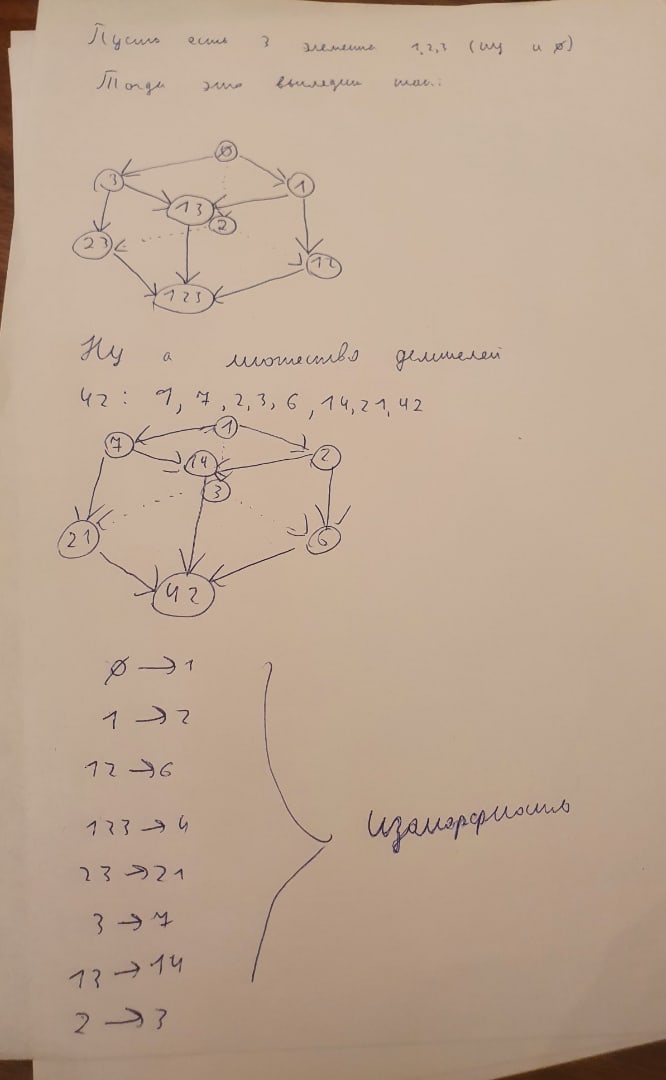 Пусть есть 3 элемента 1,2,3 (ну и ∅)
Тогда это выглядит так:
∅
3
1
13
2
23
12
123
Ну а множество делителей
42: 1, 7, 2, 3, 6, 14, 21, 42
1
7
2
14
3
21
6
42
∅ → 1
1 → 2
12 → 6
123 → 4
23 → 21
3 → 7
13 → 14
2 → 3
Изоморфность